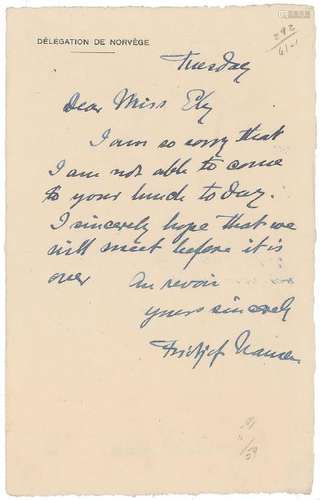 DÉLÉGATION DE NORVÈGE.
292
61-1
Tuesday
Dear Miss Ely
I am so sorry that
I am not able to come
to your lunch to day.
I sincerely hope that we
will meet before it is
over Au revoir
yours sincerely
Fridtjof Nansen